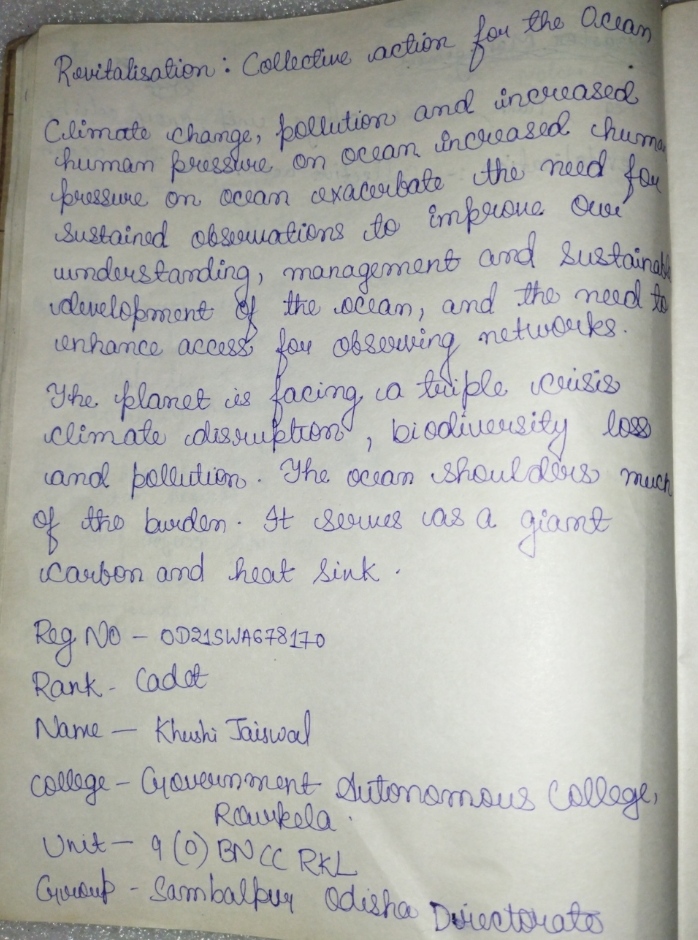 Revitalisation : Collective action for the Ocean
Climate change, pollution and increased
human pressure on ocean increased huma
pressure on ocean exacerbate the need for
sustained observations to improve our
understanding, management and sustainable
development of the ocean, and the need to
enhance access for observing networks.
The planet is facing a triple crisis
climate disruption, biodiversity loss
and pollution. The ocean shoulders much
of the burden. It serves as a giant
carbon and heat sink.
Reg No - OD21SWA678170
Rank - Cadet
Name - Khushi Jaiswal
College - Government Autonomous College,
Rourkela.
Unit - 9 (O) BN CC RKL
Group - Sambalpur Odisha Directorate